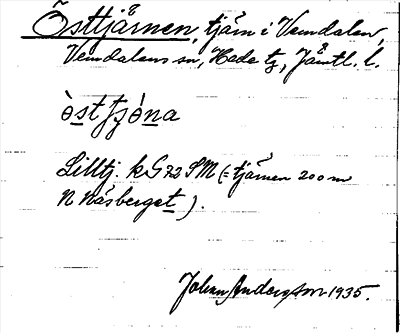 Östtjärnen, tjärn i Vemdalen,
Vemdalens sn, Hede tg, Jämtl. l.
òstʃʒò̀na
Lilltj. k G 72 SM (= tjärnen 200 m
N Näsberget).
Johan Andersson 1935.